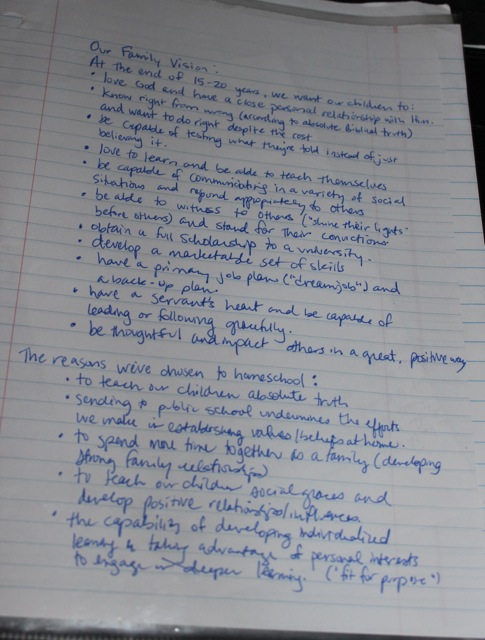 Our Family Vision:
At the end of 15-20 years, we want our children to:
• love God and have a close personal relationship with Him.
• know right from wrong (according to absolute Biblical truth)
and want to do right despite the cost
• be capable of testing what they're told instead of just
believing it.
• love to learn and be able to teach themselves
• be capable of communicating in a variety of social
situations and respond appropriately to others
• be able to witness to others ("shine their lights"
before others) and stand for their convictions
• obtain a full scholarship to a university.
• develop a marketable set of skills
• have a primary job plan ("dream job") and
a back-up plan
• have a servant's heart and be capable of
leading or following gracefully.
• be thoughtful and impact others in a great, positive way
The reasons we've chosen to homeschool:
• to teach our children absolute truth
• sending to public school undermines the efforts
we make in establishing values/beliefs at home.
• to spend more time together as a family (developing
strong family relationships)
• to teach our children social graces and
develop positive relationships/influences
• the capability of developing individualized
learning & taking advantage of personal interests
to engage in deeper learning. ("fit for purpose")